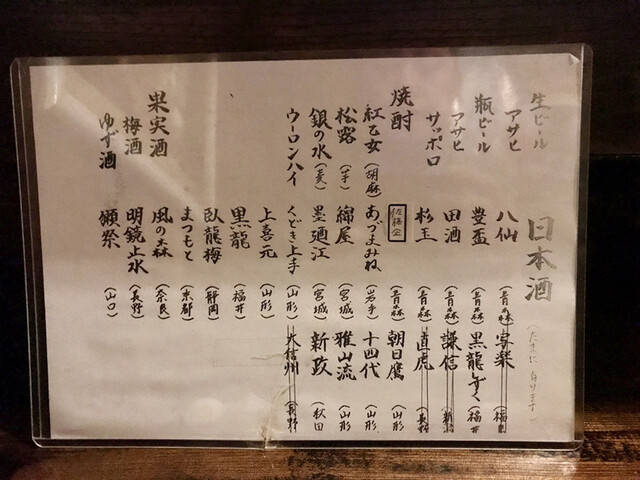 生ビール
アサヒ
瓶ビール
アサヒ
サッポロ
焼酎
紅乙女(胡麻)
松露(芋)
銀の水(麦)
ウーロンハイ
果実酒
梅酒
ゆず酒
日本酒
(たまに有ります)
八仙(青森)
豊盃(青森)
田酒(青森)
杉玉(青森)
(青森)
あづまみね(岩手)
綿屋(宮城)
墨廼江(宮城)
くどき上手(山形)
上喜元(山形)
黒龍(福井)
臥龍梅(静岡)
まつもと(京都)
風の森(奈良)
明鏡止水(長野)
獺祭(山口)
写楽(福島)
黒龍しずく(福井)
謙信(新潟)
直虎(長野)
朝日鷹(山形)
十四代(山形)
雅山流(山形)
新政(秋田)
大信州(長野)